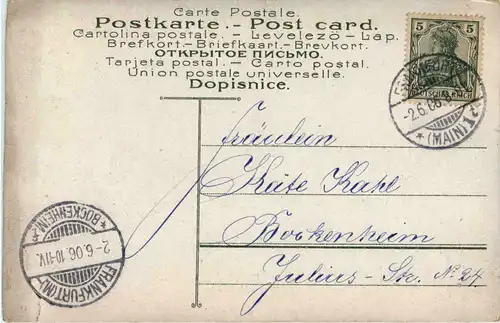 Carte Postale.
Postkarte. - Post card.
Cartolina postale. - Levelező - Lap.
Brefkort. - Briefkaart. - Brevkort.
ОТКРЫТОЕ ПИСЬМО.
Tarjeta postal. - Carto postal.
Union postale universelle.
Dopisnice.
5 5
DEUTSCHES REICH
-2.6.06.
* (MAIN) 1
Fräulein
Käte Kahl
Bockenheim
Julius-Str. No 27
* BOCKENHEIM *
2-6.06.10-11V.
FRANKFURT (M)